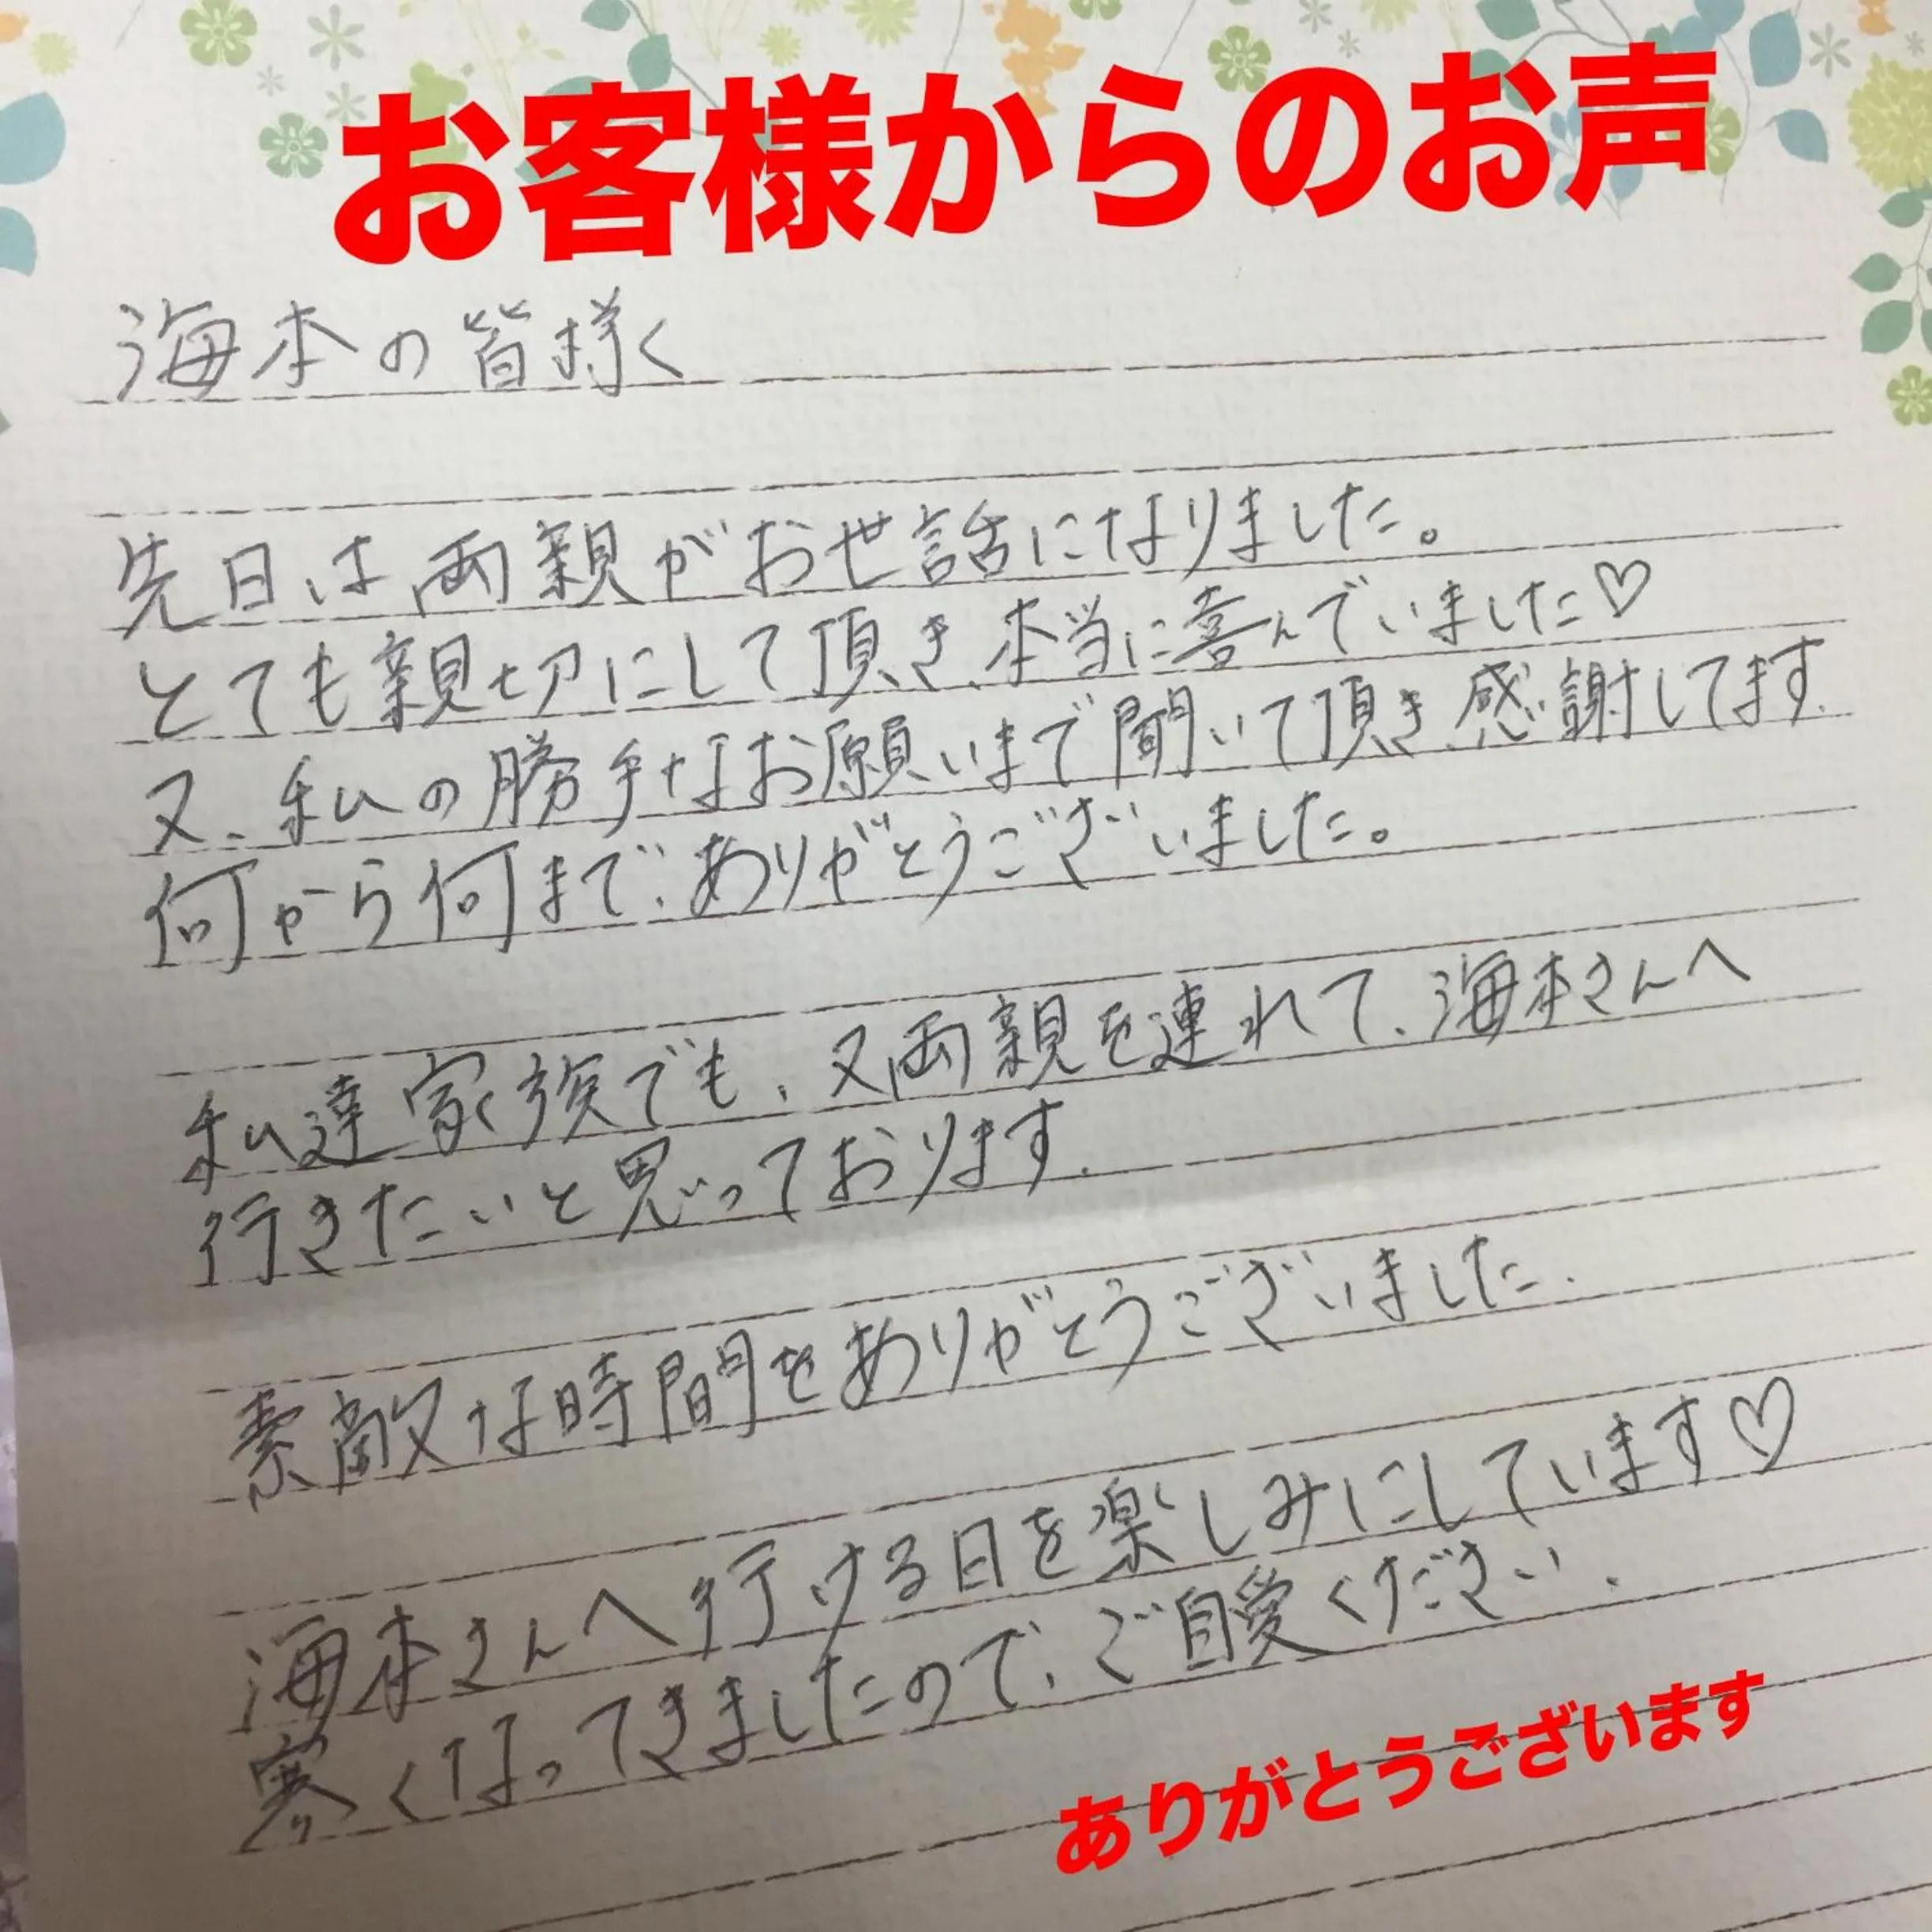 お客様からのお声
海本の皆様へ
先日は両親がお世話になりました。
とても親切にして頂き、本当に喜んでいました♡
又、私の勝手なお願いまで聞いて頂き、感謝してます。
何から何まで、ありがとうございました。
私達家族でも、又両親を連れて、海本さんへ
行きたいと思っております。
素敵な時間をありがとうございました。
海本さんへ行ける日を楽しみにしています♡
寒くなってきましたので、ご自愛ください。
ありがとうございます